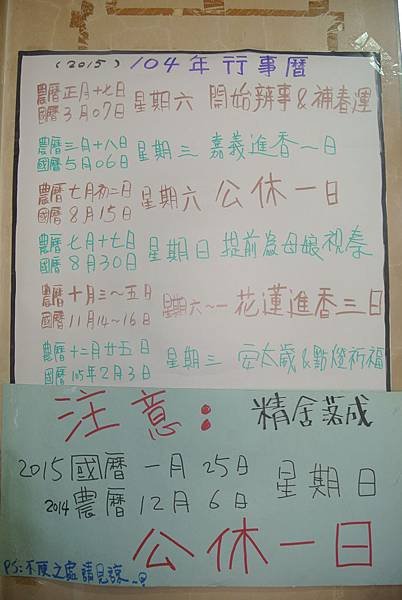 (2015) 104年行事曆
農曆 正月十七日
國曆 3月07日 星期六 開始辦事&補春運
農曆 三月十八日
國曆 5月06日 星期三 嘉義進香一日
農曆 七月初二日
國曆 8月15日 星期六 公休一日
農曆 七月十七日
國曆 8月30日 星期日 提前為母娘祝壽
農曆 十月三~五日
國曆 11月14~16日 星期六~一 花蓮進香三日
農曆 十二月廿五日
國曆 105年2月3日 星期三 安太歲&點燈祈福
注意: 精舍落成
2015國曆 一月25日 星期日
2014農曆 12月6日
公休一日
PS:不便之處請見諒